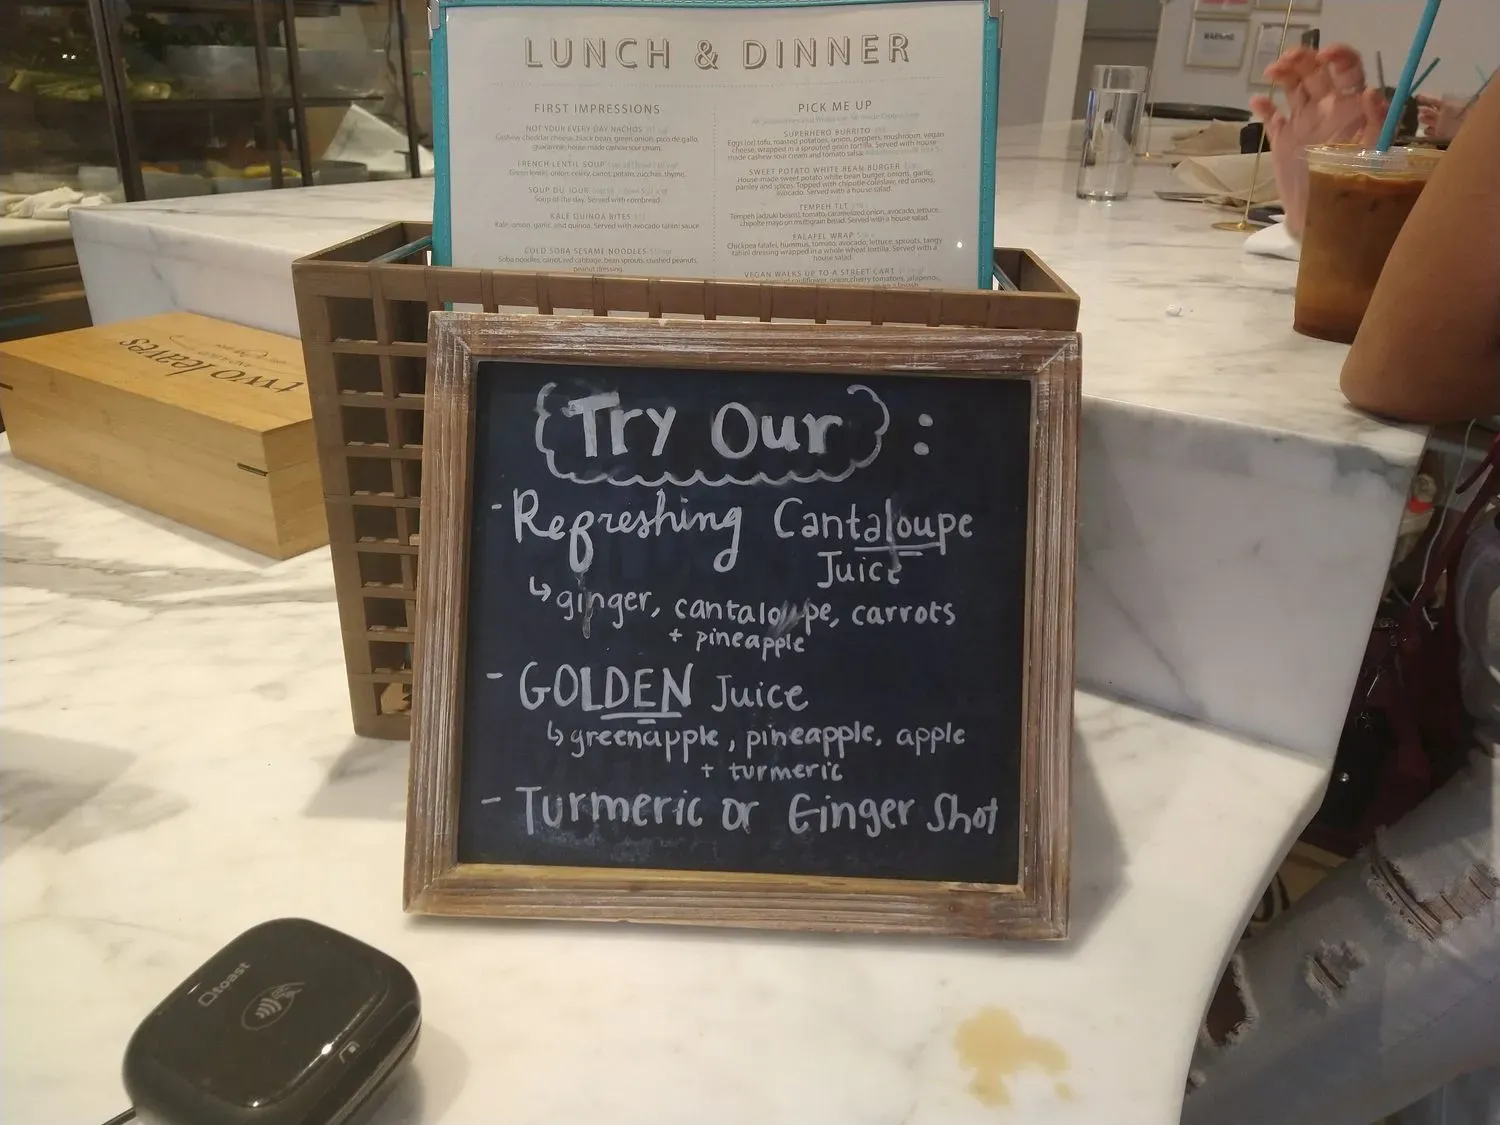 LUNCH & DINNER
FIRST IMPRESSIONS
NOT YOUR EVERY DAY NACHOS
Cashew cheddar cheese, black bean, green onion, pico de gallo,
guacamole, house made cashew sour cream.
FRENCH LENTIL SOUP
Green lentils, onion, celery, carrot, potato, zucchini, thyme.
SOUP DU JOUR
Soup of the day. Served with cornbread.
KALE QUINOA BITES
Kale, onion, garlic, and quinoa. Served with avocado tahini sauce
COLD SOBA SESAME NOODLES
Soba noodles, carrot, red cabbage, bean sprouts, crushed peanuts,
peanut dressing.
PICK ME UP
SUPERHERO BURRITO
Eggs (or) tofu, roasted potatoes, onion, peppers, mushroom, vegan
cheese, wrapped in a sprouted grain tortilla. Served with house
made cashew sour cream and tomato salsa.
SWEET POTATO WHITE BEAN BURGER
House-made sweet potato white bean burger, onions, garlic,
parsley and spices. Topped with chipotle coleslaw, red onions,
avocado. Served with a house salad.
TEMPEH TLT
Tempeh (adzuki beans), tomato, caramelized onion, avocado, lettuce,
chipotle mayo on multigrain bread. Served with a house salad.
FALAFEL WRAP
Chickpea falafel, hummus, tomato, avocado, lettuce, sprouts, tangy
tahini dressing wrapped in a whole wheat tortilla. Served with a
house salad.
VEGAN WALKS UP TO A STREET CART
cauliflower, onion, cherry tomatoes, jalapeno,
two leaves
WARNING
Try Our :
- Refreshing Cantaloupe
Juice
↳ ginger, cantaloupe, carrots
+ pineapple
- GOLDEN Juice
↳ greenapple, pineapple, apple
+ turmeric
- Turmeric or Ginger Shot
toast